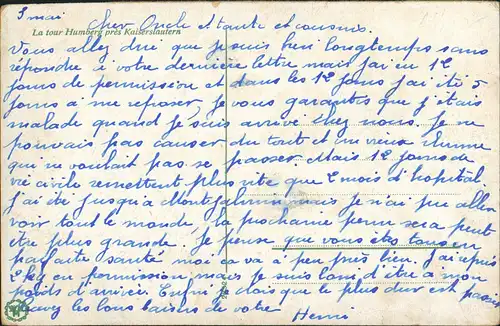 5 mai
Cher Oncle et tante et cousins.
La tour Humberg près Kaiserslautern
Vous allez dire que je suis bien longtemps sans
répondre à votre dernière lettre mais j'ai eu 12
jours de permission et dans les 12 jours j'ai été 5
jours à me reposer, je vous garantis que j'étais
malade quand je suis arrivé chez nous. Je ne
pouvais pas causer du tout et un vieux rhume
qui ne voulait pas se passer. Mais 12 jours de
vie civile remettent plus vite que 2 mois d'hopital
j'ai été jusqu'à mais je n'ai pue aller
voir tout le monde, la prochaine perme sera peut
être plus grande. Je pense que vous êtes tous en
parfaite santé moi ca va à peu près bien. j'ai repris
2 kg en permission mais je suis loin d'être à mon
poids d'arrivée. Enfin je crois que le plus dur est passé
les bons baisers de votre
Henri